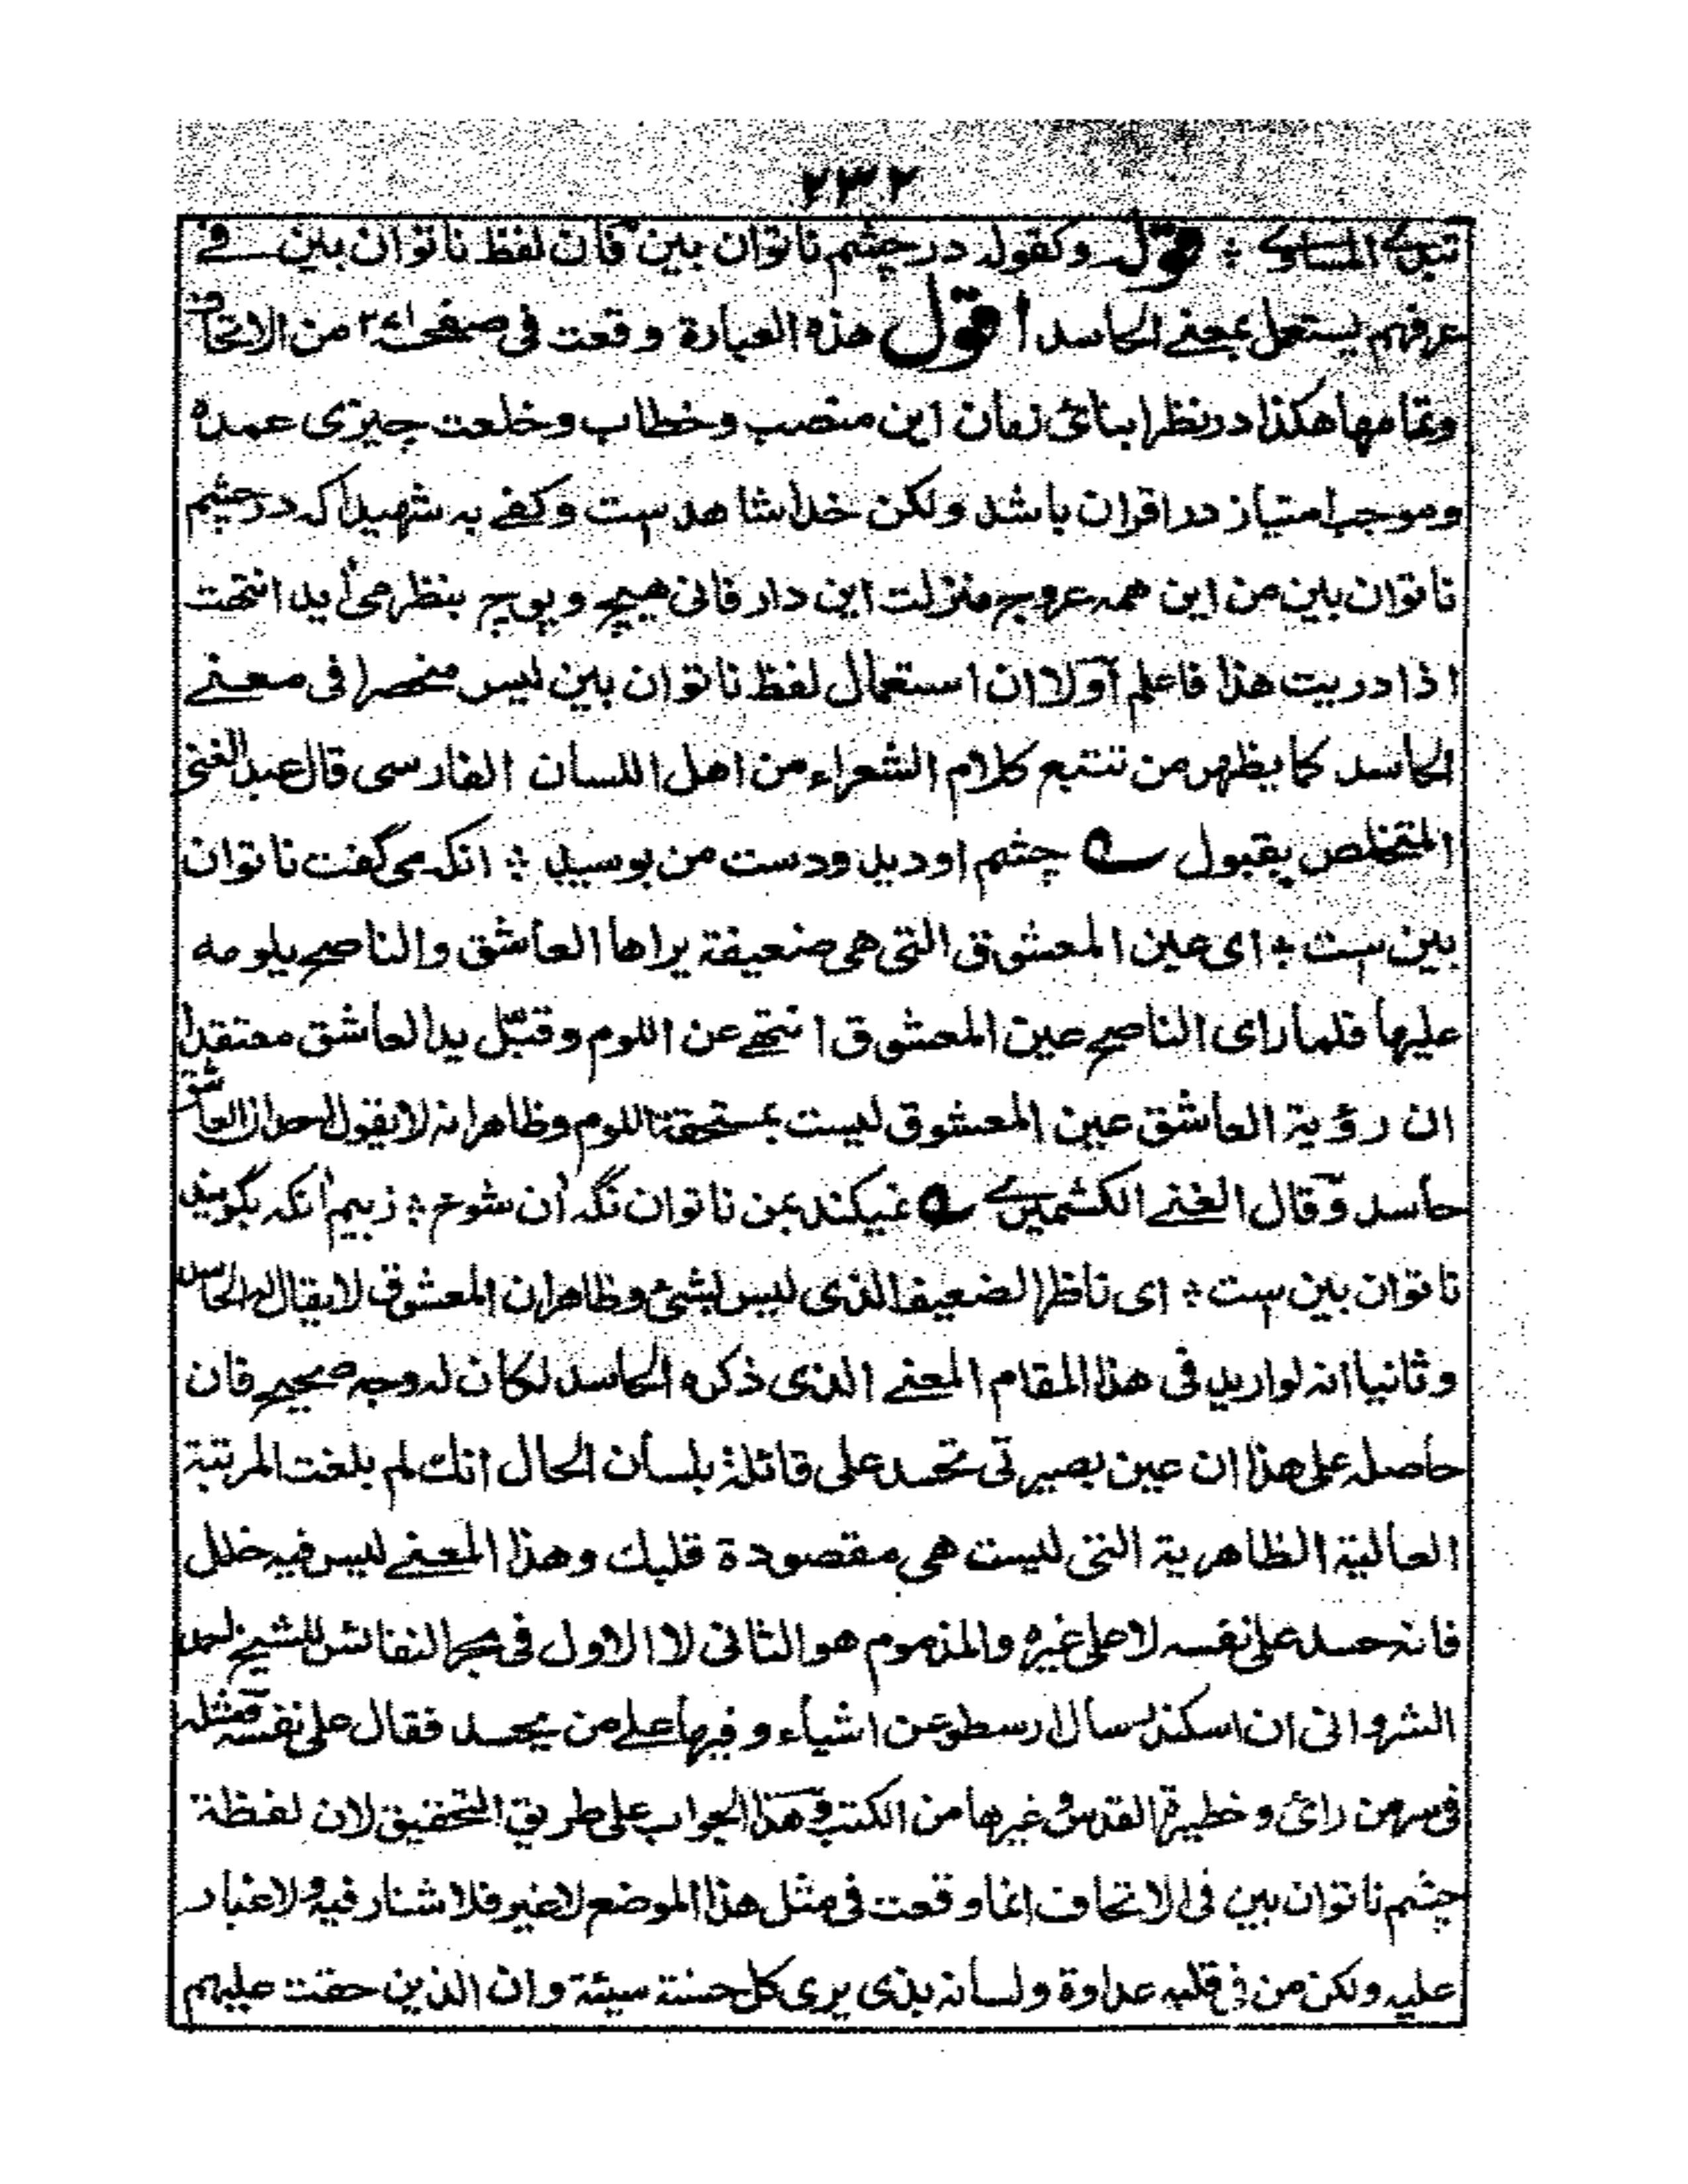 ٢٣٢
تبدى المساوى ؞ قوله وكقوله در چشم ناتوان بين فان لفظ ناتوان بين فى
عرفهم يستعمل بمعنى الحاسد اقول هذه العبارة وقعت فى صفحة من الاتحاف
وتمامها هكذا در نظر ابنائى زمان اين منصب وخطاب وخلعت چيزى عمده
وموجب امتياز در اقران باشد ولكن خدا شاهد ست وكفى به شهيدا كه در چشم
ناتوان بين من اين همه عروج منزلت اين دار فانى هيچ و پوچ بنظر مى أيد انتهت
اذا دريت هذا فاعلم اولا ان استعمال لفظ ناتوان بين ليس منحصرا فى معنى
الحاسد كما يظهر من تتبع كلام الشعراء من اهل اللسان الفارسى قال عبد الغنى
المتخلص بقبول ؎ چشم او ديد ودست من بوسيد ؞ انكه مى گفت ناتوان
بين ست ؞ اى عين المعشوق التى هى ضعيفة يراها العاشق والناصح يلومه
عليها فلما راى الناصح عين المعشوق انتهى عن اللوم وقبّل يد العاشق معتقدا
ان رؤية العاشق عين المعشوق ليست بمستحقة للوم وظاهر انه لا يقول احد ان العاشق
حاسد وقال الغنى الكشميرى ؎ نميكند بمن ناتوان نگه أن شوخ ؞ زبيم أنكه بگويند
ناتوان بين ست ؞ اى ناظر الضعيف الذى ليس بشئ وظاهر ان المعشوق لا يقال له الحاسد
وثانيا انه لو اريد فى هذا المقام المعنى الذى ذكره الحاسد لكان له وجه صحيح فان
حاصله على هذا ان عين بصيرتى تحسد على قائلة بلسان الحال انك لم بلغت المرتبة
العالية الظاهرية التى ليست هى مقصودة قلبك وهذا المعنى ليس فيه خلل
فانه حسد على نفسه لا على غيره والمذموم هو الثانى لا الاول فى بحر النفائس للشيخ احمد
الشروانى ان اسكندر سال ارسطو عن اشياء وفيها على من يحسد فقال على نفسه ومثله
فى سر من رائ وخطيرة القدس وغيرها من الكتب وهذا الجواب على طريق التحقيق لان لفظة
چشم ناتوان بين فى الاتحاف انما وقعت فى مثل هذا الموضع لا غير فلا شنار فيه ولا غبار
عليه ولكن من فى قلبه عداوة ولسانه بذى يرى كل حسنة سيئة وان الذين حقت عليهم